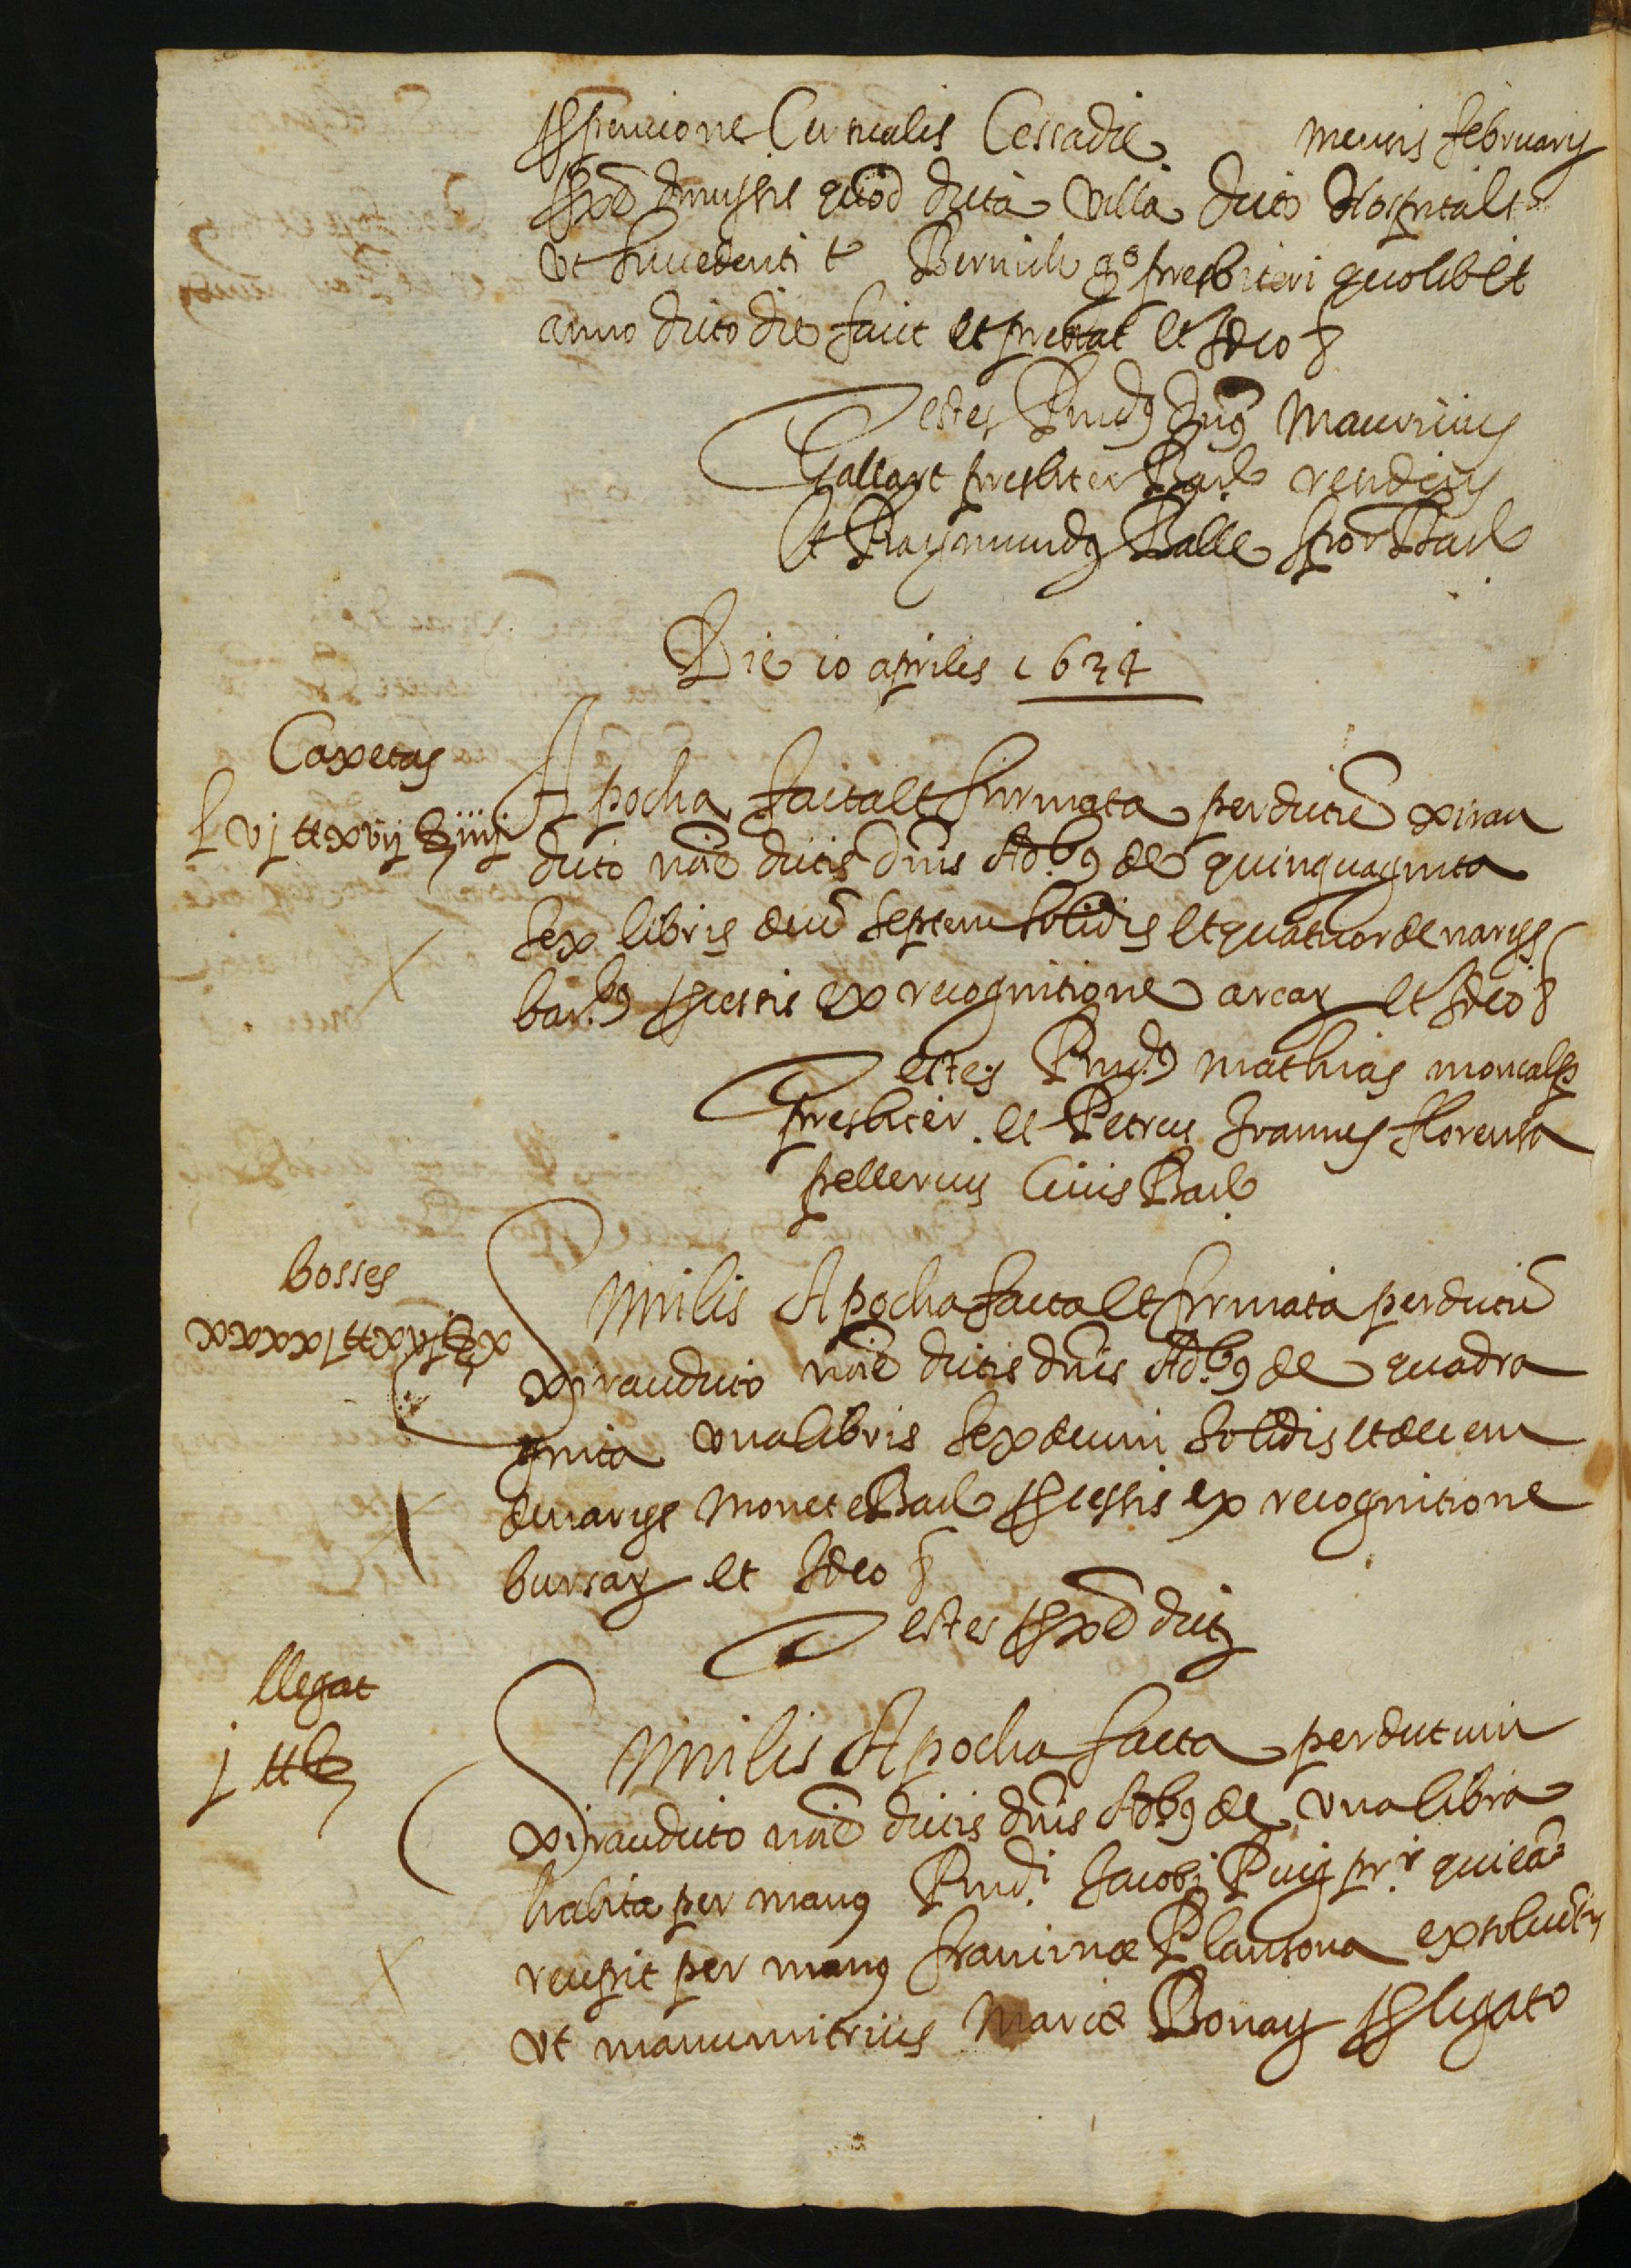 pencione Censualis Cessa die mensis februarij
proxime dimissis quod dicta villa dicto Hospitali
ut succedenti t Bernich qo presbiteri quolibet
anno dicto die facit et prestat et Ideo &
Testes Rndus Dns Mauricius
Gallart presbiter Bar residens
et Raymundus Balle scror Bar
Die 10 aprilis 1634
Caxetas
Lvj ll xvij s iiij
Apocha facta et firmata per dictum xirau
dicto noie dictis dnis Adbus de quinquaginta
sex libris decem septem solidis et quatuor denarijs
bar.bus processis ex recognitione arcar et Ideo &
Testes Rndus Mathias moncalp
presbiter et Petrus Joannes florensa
pellerius Civis Bar
bosses
xxxxj ll xvj s x
Similis Apocha facta et firmata per dictum
xirau dicto noie dictis dnis Adbus de quadra
ginta una libris sexdecim solidis et decem
denarijs monete Bar processis ex recognitione
bursar et Ideo &
Testes proxime dicti
llegat
j ll s
Similis Apocha facta per dictum
xirau dicto noie dictis dnis Adbus de una libra
habita per manus Rndi Jacobi Puig prr qui eam
recepit per manus francinæ Plansona exsolventis
ut manumitricis Mariæ Bonay pro legato